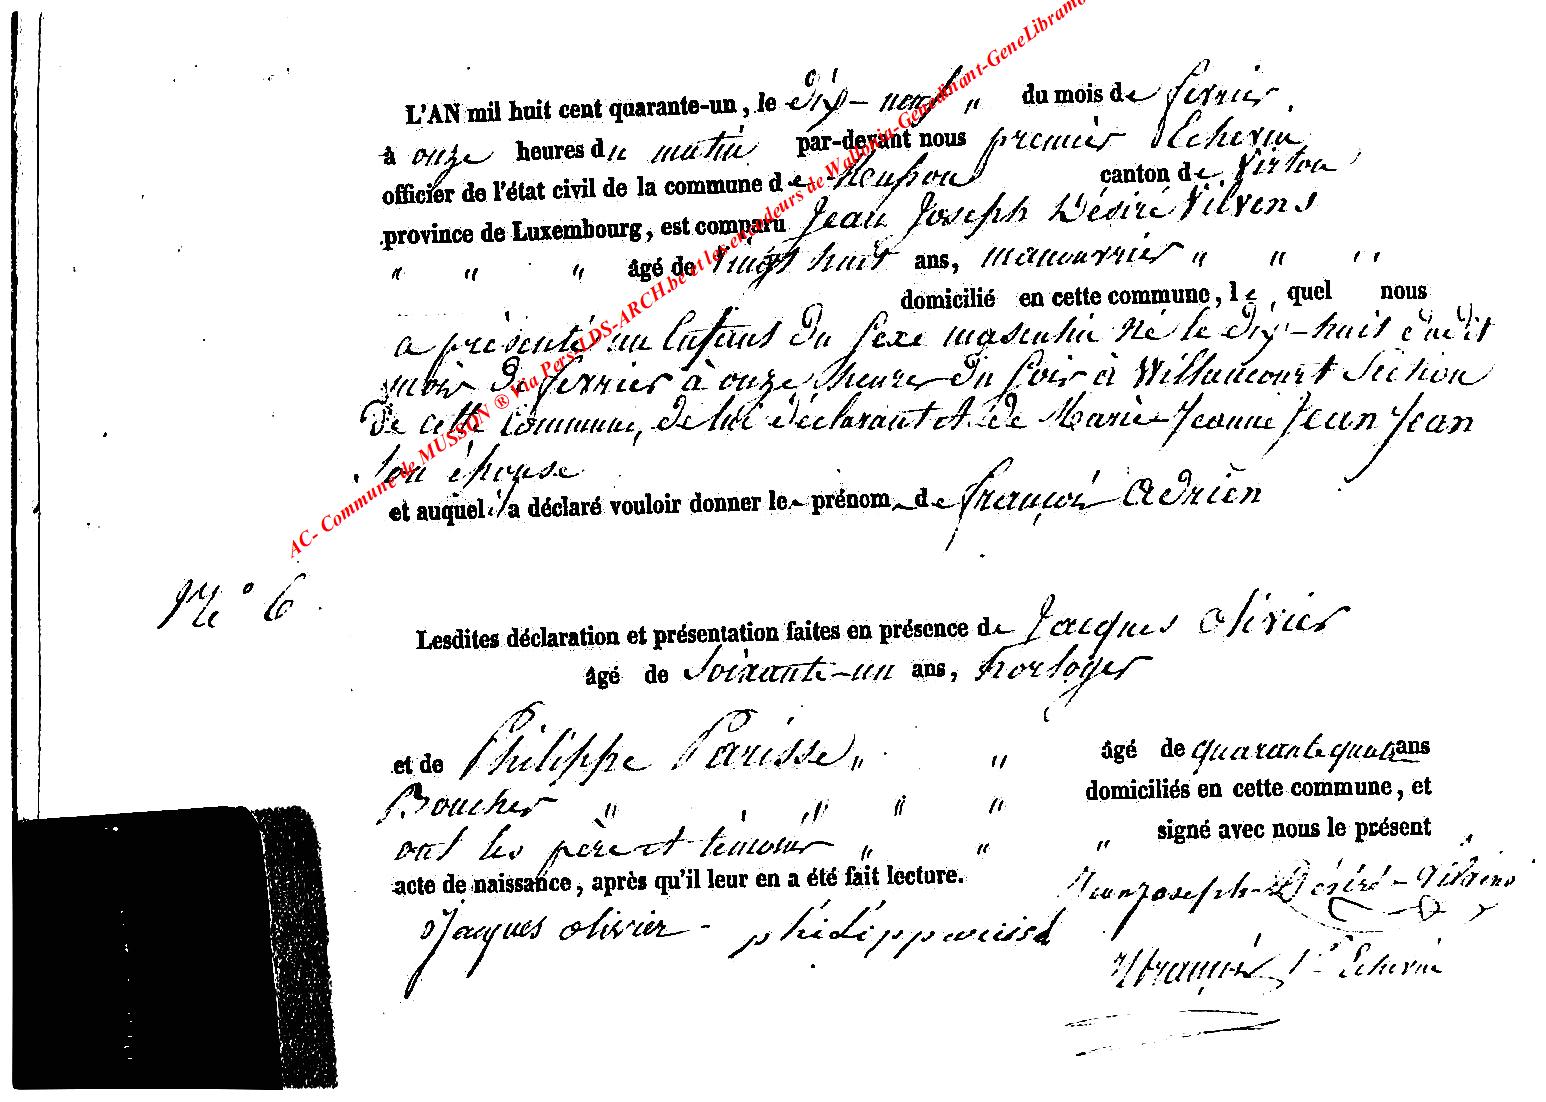 L'AN mil huit cent quarante-un, le dix-neuf " du mois de fevrier.
à onze heures du matin par-devant nous premier Echevin
officier de l'état civil de la commune de Musson canton de Virton
province de Luxembourg, est comparu Jean Joseph Désiré Vilvens
" " " âgé de vingt huit ans, manouvrier " " "
domicilié en cette commune, le quel nous
a présenté un Enfant du sexe masculin né le dix-huit dudit
mois de fevrier à onze heures du soir à Willancourt Section
De cette Commune, de lui déclarant et de Marie Jeanne Jean Jean
son épouse
et auquel il a déclaré vouloir donner le prénom de françois Adrien
N° 6
Lesdites déclaration et présentation faites en présence de Jacques Olivier
âgé de Soixante-un ans, horloger
et de Philippe Parisse " " âgé de quarante quatre ans
Boucher " " " " domiciliés en cette commune, et
ont les père et témoins " " " signé avec nous le présent
acte de naissance, après qu'il leur en a été fait lecture.
Jean joseph Désiré - Vilvens
Jacques olivier - philipp parisse
françois 1er Echevin
AC- Commune de MUSSON ® Via Pers.LDS-ARCH.be et les encodeurs de Wallonia-Genedinant-GeneLibramo